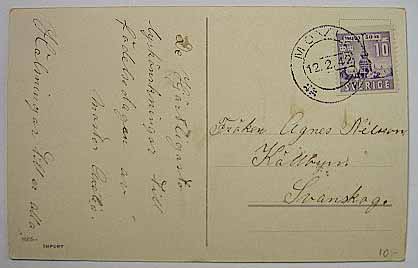 De Hjärtligaste
lyckönskningar till
födelsedagen av
moster
Hälsningar till er alla
IMPORT
12.2.42
10
SVERIGE
Fröken Agnes Nilsson
Källbyn
Svanskog.
10-